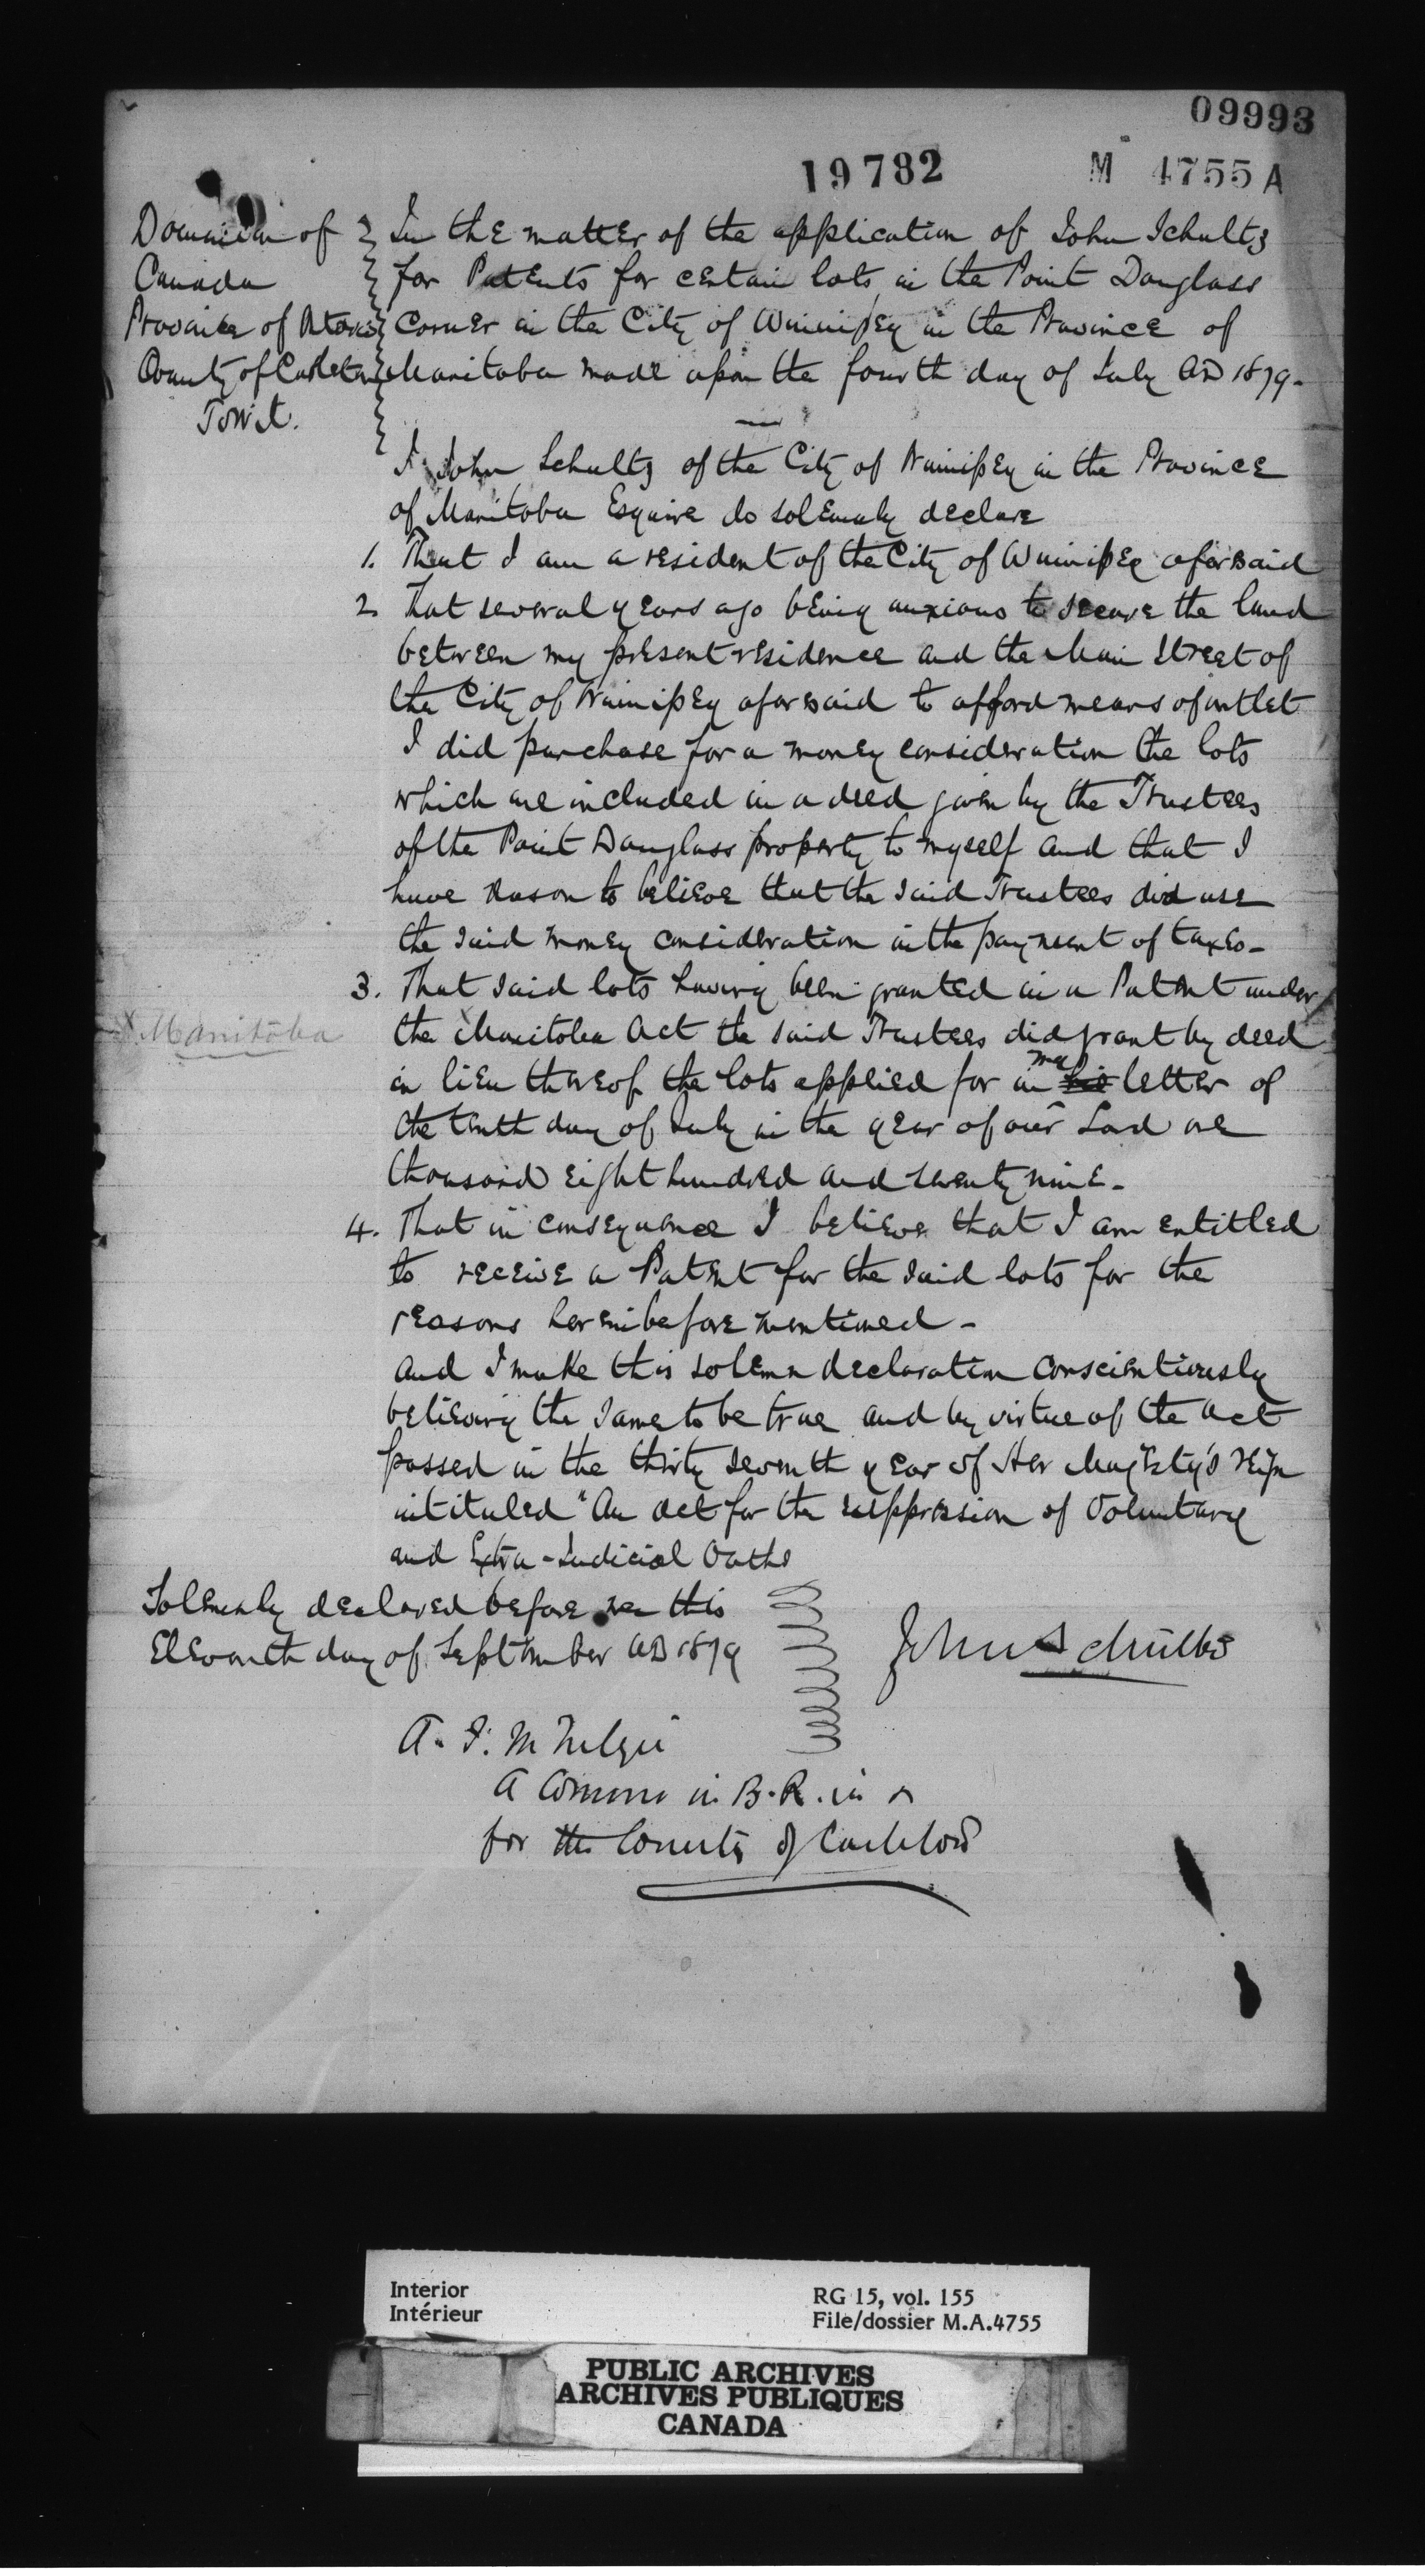 09993
19782 M 4755 A
Dominion of
Canada
Province of Ontario
County of Carleton
To Wit.
In the matter of the application of John Schultz
for Patents for certain lots in the Point Douglass
Corner in the City of Winnipeg in the Province of
Manitoba made upon the fourth day of July AD 1879-
I John Schultz of the City of Winnipeg in the Province
of Manitoba Esquire do solemnly declare
1. That I am a resident of the City of Winnipeg aforesaid
2 That several years ago being anxious to secure the land
between my present residence and the Main Street of
the City of Winnipeg aforesaid to afford means of outlet
I did purchase for a money consideration the lots
which are included in a deed given by the Trustees
of the Point Douglass property to myself and that I
have reason to believe that the said Trustees did use
the said money consideration in the payment of taxes-
3. That said lots having been granted in a Patent under
X Manitoba
the Manitoba Act the said Trustees did grant by deed
in lieu thereof the lots applied for in my his letter of
the tenth day of July in the year of our Lord one
thousand eight hundred and seventy nine-
4. That in consequence I believe that I am entitled
to receive a Patent for the said lots for the
reasons hereinbefore mentioned-
and I make this solemn declaration conscientiously
believing the same to be true and by virtue of the act
passed in the thirty seventh year of Her Majesty's reign
intituled "An act for the suppression of Voluntary
and Extra-Judicial Oaths
Solemnly declared before me this
Eleventh day of September AD 1879
John Schultz
A. F. 
A Commr in B.R. in &
for the County of Carleton
Interior
Intérieur
RG 15, vol. 155
File/dossier M.A.4755
PUBLIC ARCHIVES
ARCHIVES PUBLIQUES
CANADA